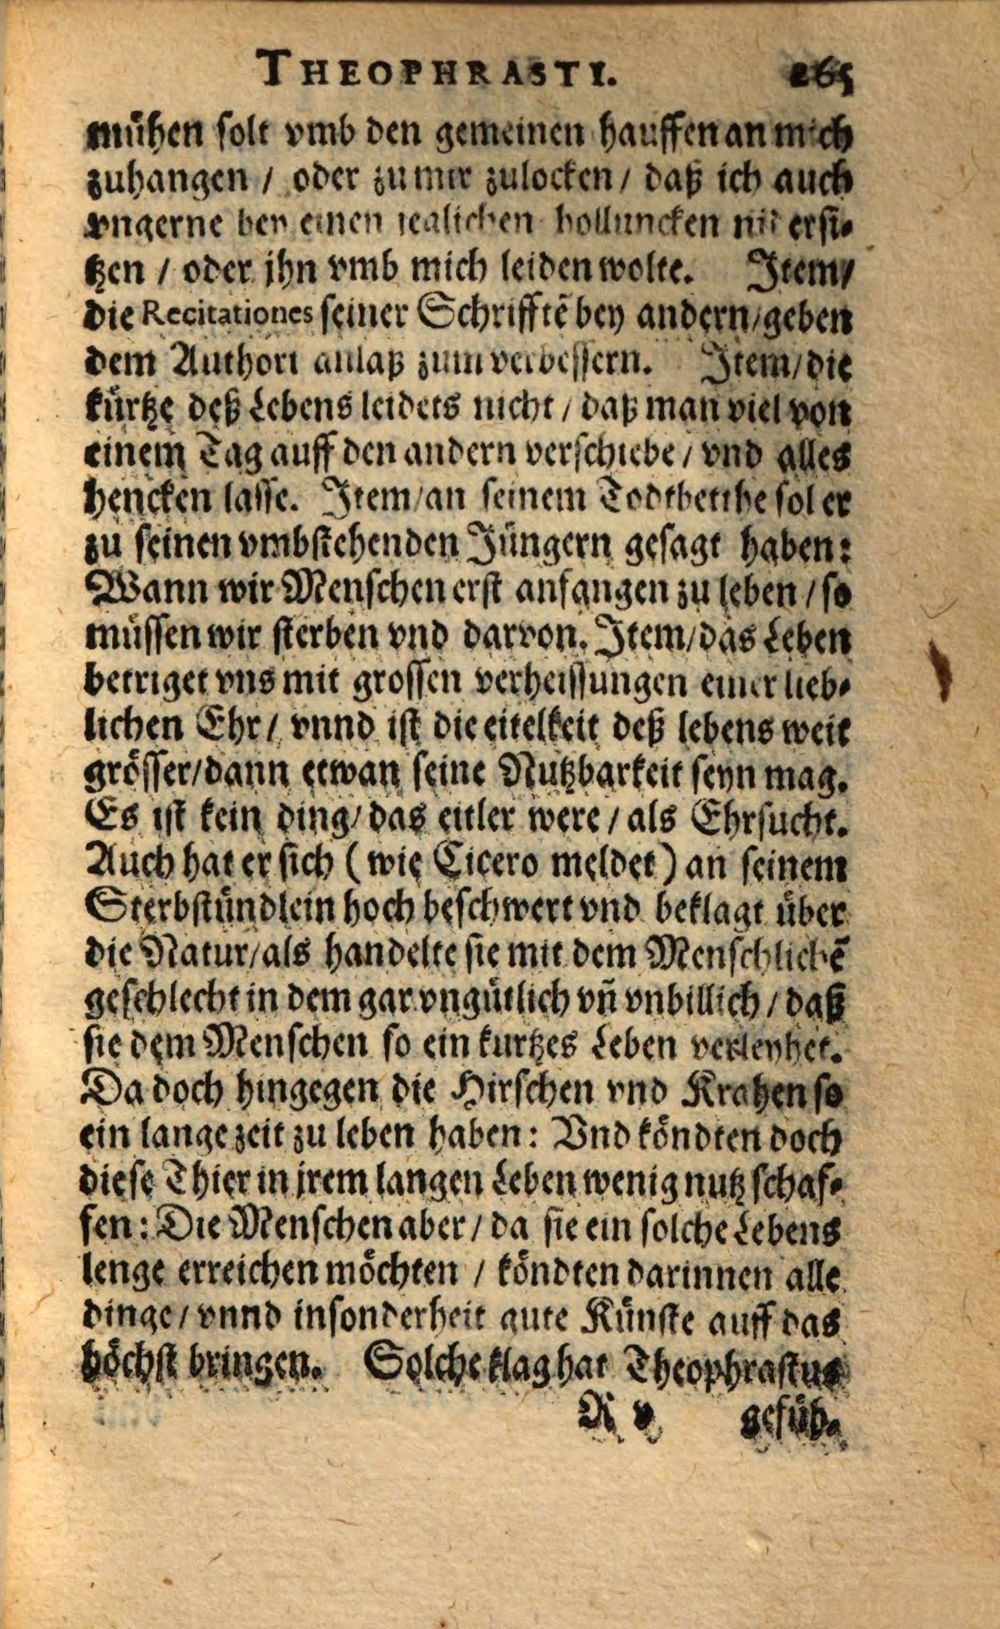 THEOPHRASTI. 265
mühen solt vmb den gemeinen hauffen an mich
zuhangen / oder zu mir zulocken / daß ich auch
vngerne bey einen ieglichen holluncken nidersi⸗
tzen / oder jhn vmb mich leiden wolte. Item/
die Recitationes seiner Schrifftẽ bey andern/geben
dem Authori anlaß zum verbessern. Item/die
kürtze deß Lebens leidets nicht / daß man viel von
einem Tag auff den andern verschiebe / vnd alles
hencken lasse. Item/an seinem Todtbetthe sol er
zu seinen vmbstehenden Jüngern gesagt haben:
Wann wir Menschen erst anfangen zu leben / so
müssen wir sterben vnd darvon. Item/das Leben
betriget vns mit grossen verheissungen einer lieb⸗
lichen Ehr / vnnd ist die eitelkeit deß lebens weit
grösser/dann etwan seine Nutzbarkeit seyn mag.
Es ist kein ding/das eitler were / als Ehrsucht.
Auch hat er sich (wie Cicero meldet) an seinem
Sterbstündlein hoch beschwert vnd beklagt über
die Natur/als handelte sie mit dem Menschlichẽ
geschlecht in dem gar vngütlich vñ vnbillich / daß
sie dem Menschen so ein kurtzes Leben verleyhet.
Da doch hingegen die Hirschen vnd Krahen so
ein lange zeit zu leben haben: Vnd köndten doch
diese Thier in jrem langen Leben wenig nutz schaf⸗
fen: Die Menschen aber / da sie ein solche Lebens
lenge erreichen möchten / köndten darinnen alle
dinge / vnnd insonderheit gute Künste auff das
höchst bringen. Solche klag hat Theophrastus
R v gefüh⸗